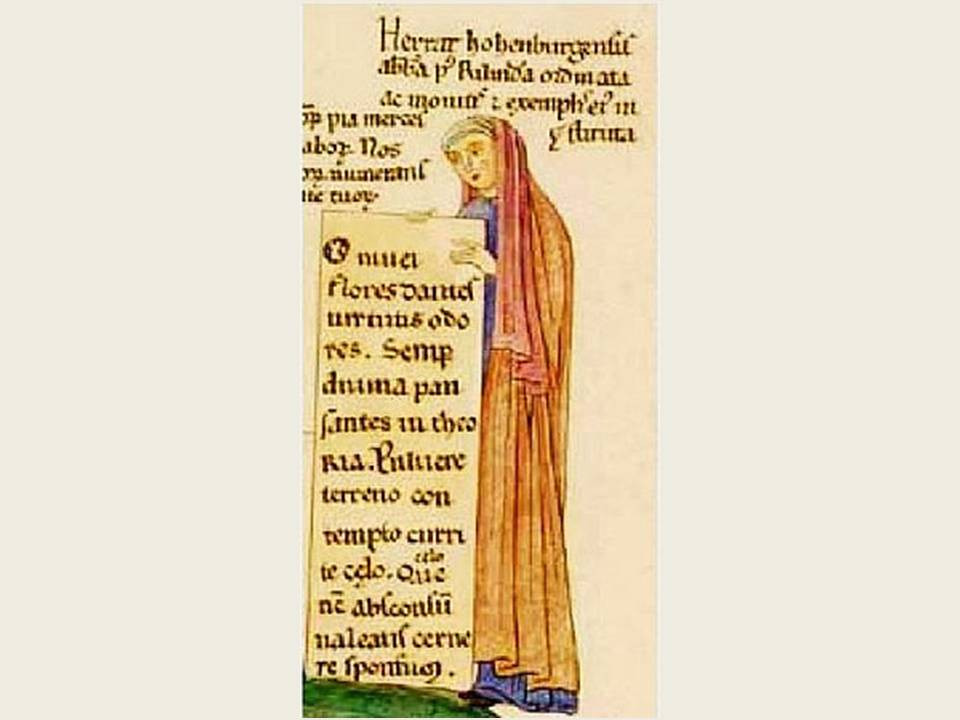 Herrat hohenburgensis
abbā pꝰ Rilindā ordinata
ac monitis ⁊ exemplis eiꝰ in
stituta
pia merces
laboꝝ. Nos
numerans
tuoꝝ
O niuei
flores dantes
uirtutis odo
res. Semp
diuina pau
santes in theo
ria. Puluere
terreno con
tempto curri
celo
te cęlo. Que
nc̄ absconsū
ualeatis cerne
re sponsum.